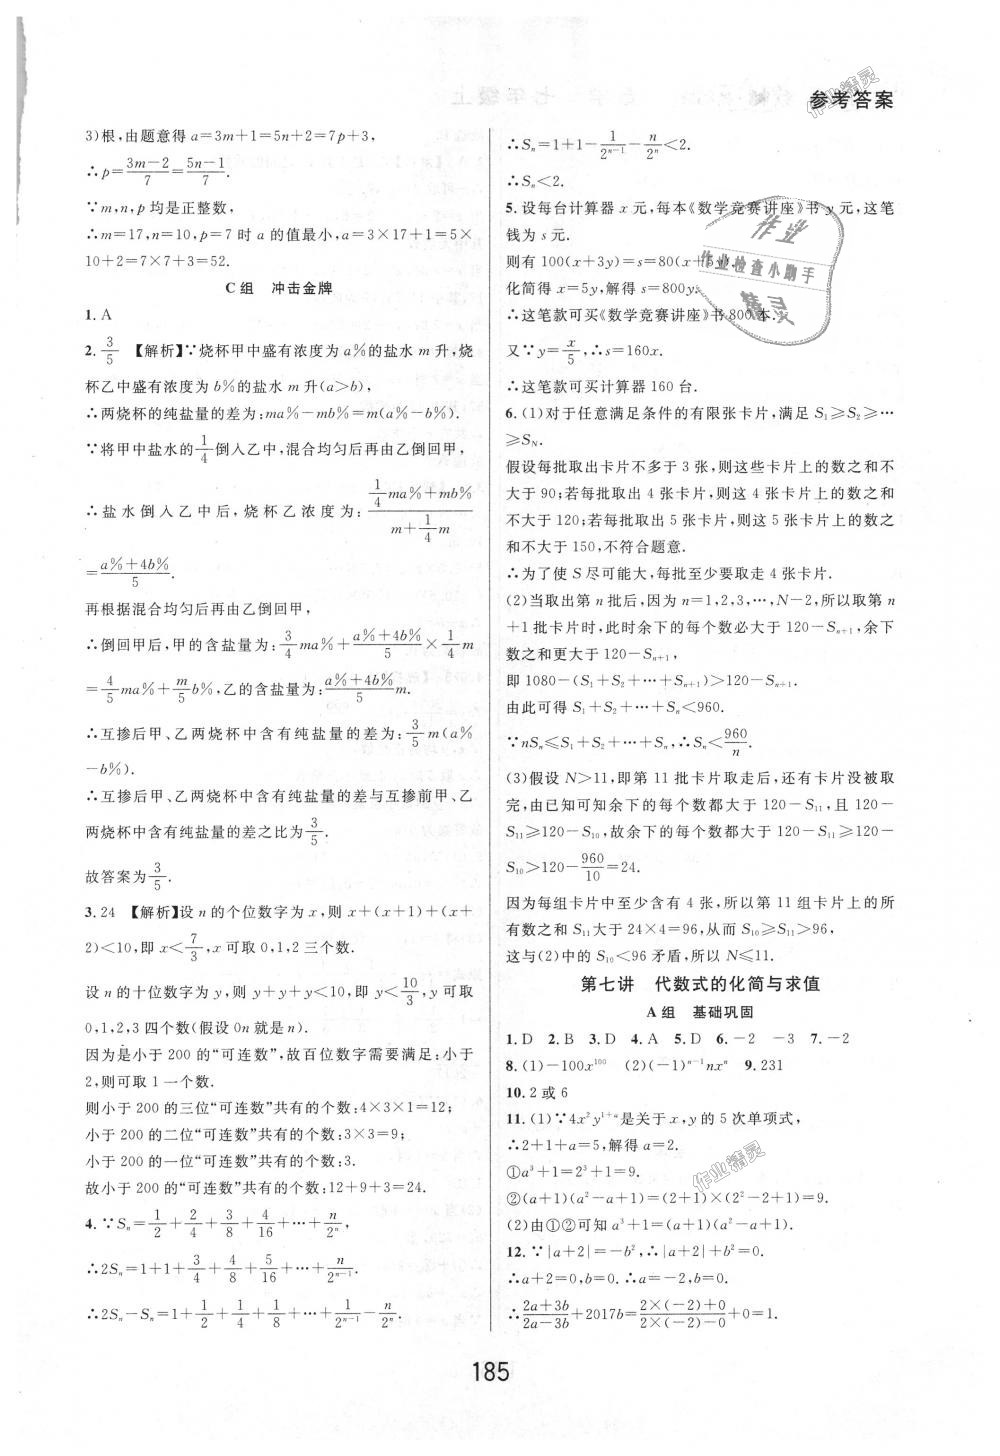 参考答案
3)根,由题意得 a=3m+1=5n+2=7p+3,
∴p=(3m−2)/7=(5n−1)/7.
∵m,n,p 均是正整数,
∴m=17,n=10,p=7 时 a 的值最小,a=3×17+1=5×
10+2=7×7+3=52.
C 组　冲击金牌
1. A
2. 3/5 【解析】∵烧杯甲中盛有浓度为 a%的盐水 m 升,烧
杯乙中盛有浓度为 b%的盐水 m 升(a>b),
∴两烧杯的纯盐量的差为:ma%−mb%=m(a%−b%).
∵将甲中盐水的 1/4 倒入乙中,混合均匀后再由乙倒回甲,
∴盐水倒入乙中后,烧杯乙浓度为:(1/4 ma%+mb%)/(m+1/4 m)
=(a%+4b%)/5.
再根据混合均匀后再由乙倒回甲,
∴倒回甲后,甲的含盐量为:3/4 ma%+(a%+4b%)/5×1/4 m
=4/5 ma%+m/5 b%,乙的含盐量为:(a%+4b%)/5 m.
∴互掺后甲、乙两烧杯中含有纯盐量的差为:3/5 m(a%
−b%).
∴互掺后甲、乙两烧杯中含有纯盐量的差与互掺前甲、乙
两烧杯中含有纯盐量的差之比为 3/5.
故答案为 3/5.
3. 24 【解析】设 n 的个位数字为 x,则 x+(x+1)+(x+
2)<10,即 x<7/3,x 可取 0,1,2 三个数.
设 n 的十位数字为 y,则 y+y+y<10,即 y<10/3,y 可取
0,1,2,3 四个数(假设 0n 就是 n).
因为是小于 200 的“可连数”,故百位数字需要满足:小于
2,则可取 1 一个数.
则小于 200 的三位“可连数”共有的个数:4×3×1=12;
小于 200 的二位“可连数”共有的个数:3×3=9;
小于 200 的一位“可连数”共有的个数:3.
故小于 200 的“可连数”共有的个数:12+9+3=24.
4. ∵Sₙ=1/2+2/4+3/8+4/16+…+n/2ⁿ,
∴2Sₙ=1+1+3/4+4/8+5/16+…+n/2ⁿ⁻¹.
∴2Sₙ−Sₙ=1+1/2+1/4+1/8+1/16+…+1/2ⁿ⁻¹−n/2ⁿ.
∴Sₙ=1+1−1/2ⁿ⁻¹−n/2ⁿ<2.
∴Sₙ<2.
5. 设每台计算器 x 元,每本《数学竞赛讲座》书 y 元,这笔
钱为 s 元.
则有 100(x+3y)=s=80(x+5y).
化简得 x=5y,解得 s=800y.
∴这笔款可买《数学竞赛讲座》书 800 本.
又∵y=x/5,∴s=160x.
∴这笔款可买计算器 160 台.
6. (1)对于任意满足条件的有限张卡片,满足 S₁≥S₂≥…
≥S_N.
假设每批取出卡片不多于 3 张,则这些卡片上的数之和不
大于 90;若每批取出 4 张卡片,则这 4 张卡片上的数之和
不大于 120;若每批取出 5 张卡片,则这 5 张卡片上的数之
和不大于 150,不符合题意.
∴为了使 S 尽可能大,每批至少要取走 4 张卡片.
(2)当取出第 n 批后,因为 n=1,2,3,…,N−2,所以取第 n
+1 批卡片时,此时余下的每个数必大于 120−Sₙ₊₁,余下
数之和更大于 120−Sₙ₊₁,
即 1080−(S₁+S₂+…+Sₙ₊₁)>120−Sₙ₊₁.
由此可得 S₁+S₂+…+Sₙ<960.
∵nSₙ≤S₁+S₂+…+Sₙ,∴Sₙ<960/n.
(3)假设 N>11,即第 11 批卡片取走后,还有卡片没被取
完,由已知可知余下的每个数都大于 120−S₁₁,且 120−
S₁₁≥120−S₁₀,故余下的每个数大于 120−S₁₁≥120−
S₁₀>120−960/10=24.
因为每组卡片中至少含有 4 张,所以第 11 组卡片上的所
有数之和 S₁₁大于 24×4=96,从而 S₁₀≥S₁₁>96,
这与(2)中的 S₁₀<96 矛盾,所以 N≤11.
第七讲　代数式的化简与求值
A 组　基础巩固
1. D 2. B 3. D 4. A 5. D 6. −2 −3 7. −2
8. (1)−100x¹⁰⁰ (2)(−1)ⁿ⁻¹nxⁿ 9. 231
10. 2 或 6
11. (1)∵4x²y¹⁺ᵃ是关于 x,y 的 5 次单项式,
∴2+1+a=5,解得 a=2.
①a³+1=2³+1=9.
②(a+1)(a²−a+1)=(2+1)×(2²−2+1)=9.
(2)由①②可知 a³+1=(a+1)(a²−a+1).
12. ∵|a+2|=−b²,∴|a+2|+b²=0.
∴a+2=0,b=0.∴a=−2,b=0.
∴(2a+3b)/(2a−3b)+2017b=(2×(−2)+0)/(2×(−2)−0)+0=1.
185
作业
作业检查小助手
精灵
作业精灵
作业精灵